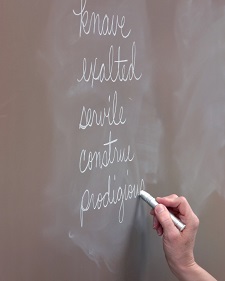 knave
exalted
servile
construe
prodigious